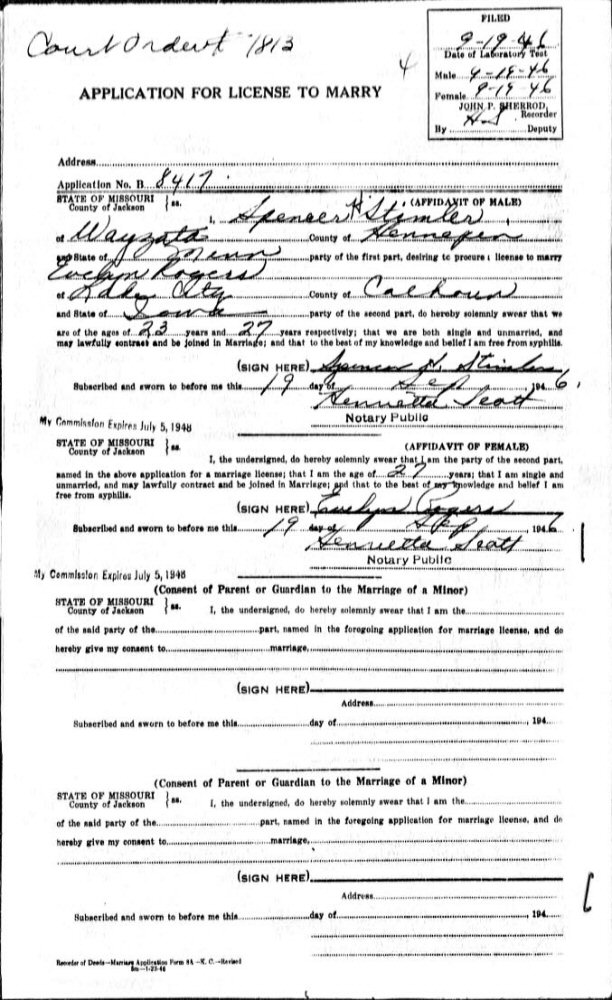 Court Order # 1813
4
FILED
9-19-46
Date of Laboratory Test
Male 9-18-46
Female 9-19-46
JOHN P. SHERROD,
Recorder
By H.S. Deputy
APPLICATION FOR LICENSE TO MARRY
Address
Application No. B 8417
STATE OF MISSOURI } ss. (AFFIDAVIT OF MALE)
County of Jackson
I, Spencer H. Stimler
of Wayzata County of Hennepin
and State of Minn party of the first part, desiring to procure a license to marry
Evelyn Rogers
of Lake City County of Calhoun
and State of Iowa party of the second part, do hereby solemnly swear that we
are of the ages of 23 years and 27 years respectively; that we are both single and unmarried, and
may lawfully contract and be joined in Marriage; and that to the best of my knowledge and belief I am free from syphilis.
(SIGN HERE) Spencer H. Stimler
Subscribed and sworn to before me this 19 day of Sep 1946.
Henrietta Scott
My Commission Expires July 5, 1948 Notary Public
STATE OF MISSOURI } ss. (AFFIDAVIT OF FEMALE)
County of Jackson
I, the undersigned, do hereby solemnly swear that I am the party of the second part,
named in the above application for a marriage license; that I am the age of 27 years; that I am single and
unmarried, and may lawfully contract and be joined in Marriage; and that to the best of my knowledge and belief I am
free from syphilis.
(SIGN HERE) Evelyn Rogers
Subscribed and sworn to before me this 19 day of Sep, 1946
Henrietta Scott
Notary Public
My Commission Expires July 5, 1948
(Consent of Parent or Guardian to the Marriage of a Minor)
STATE OF MISSOURI } ss.
County of Jackson
I, the undersigned, do hereby solemnly swear that I am the
of the said party of the part, named in the foregoing application for marriage license, and do
hereby give my consent to marriage,
(SIGN HERE)
Address
Subscribed and sworn to before me this day of, 194
(Consent of Parent or Guardian to the Marriage of a Minor)
STATE OF MISSOURI } ss.
County of Jackson
I, the undersigned, do hereby solemnly swear that I am the
of the said party of the part, named in the foregoing application for marriage license, and do
hereby give my consent to marriage,
(SIGN HERE)
Address
Subscribed and sworn to before me this day of, 194
Recorder of Deeds—Marriage Application Form 8A—K. C.—Revised
5m—1-23-46